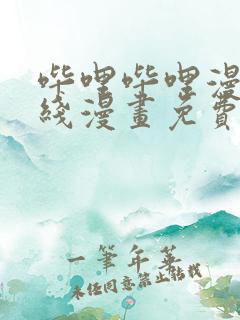 哔哩哔哩漫
线漫畫免費
一筆年華
未经同意禁止转载